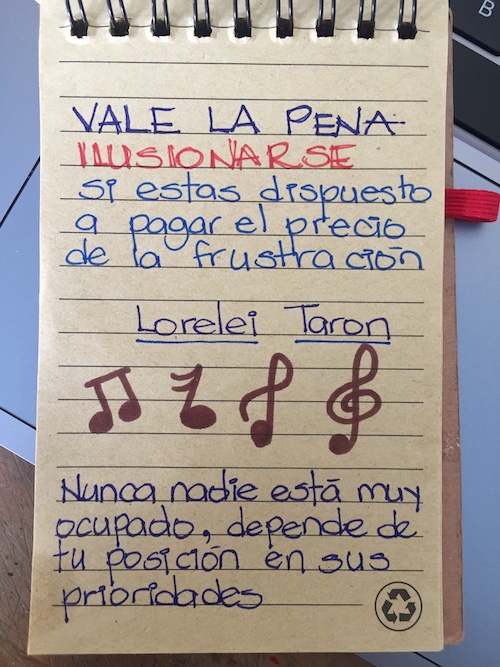 VALE LA PENA
ILUSIONARSE
si estas dispuesto
a pagar el precio
de la frustración
Lorelei Taron
Nunca nadie está muy
ocupado, depende de
tu posición en sus
prioridades
B